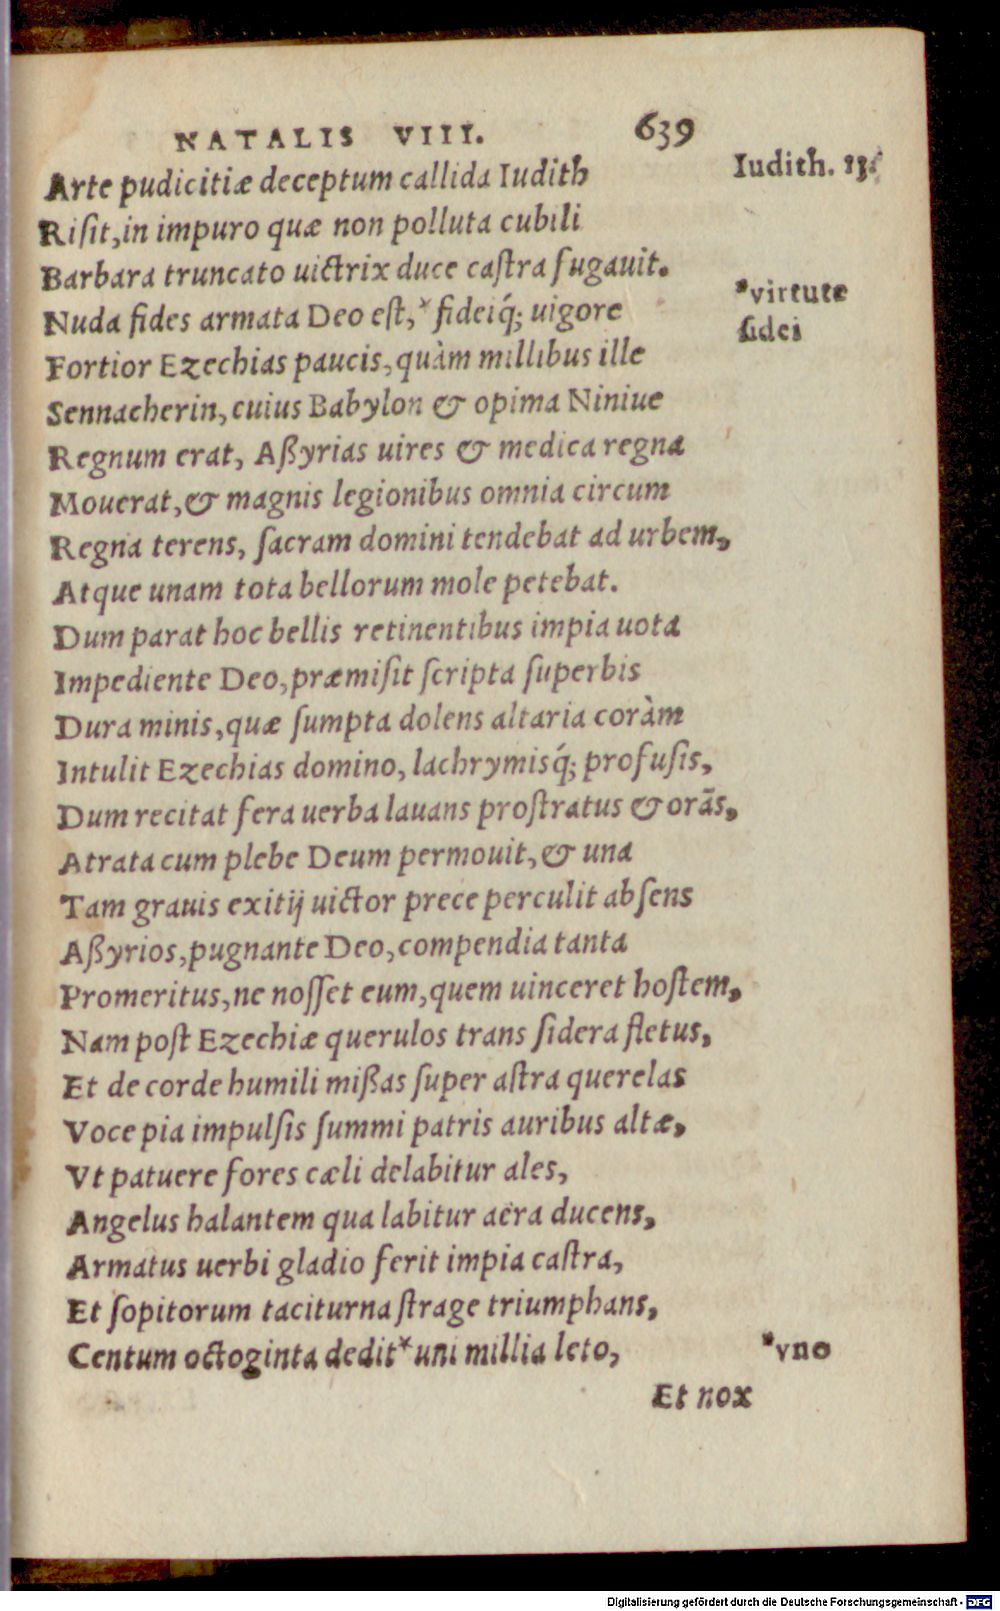 NATALIS VIII. 639
Arte pudicitiæ deceptum callida Iudith
Iudith. 13.
Risit, in impuro quæ non polluta cubili
Barbara truncato uictrix duce castra fugauit.
Nuda fides armata Deo est,* fideiq́; uigore
*virtute
fidei
Fortior Ezechias paucis, quàm millibus ille
Sennacherin, cuius Babylon & opima Niniue
Regnum erat, Aßyrias uires & medica regna
Mouerat, & magnis legionibus omnia circum
Regna terens, sacram domini tendebat ad urbem,
Atque unam tota bellorum mole petebat.
Dum parat hoc bellis retinentibus impia uota
Impediente Deo, præmisit scripta superbis
Dura minis, quæ sumpta dolens altaria coràm
Intulit Ezechias domino, lachrymisq́; profusis,
Dum recitat fera uerba lauans prostratus & orãs,
Atrata cum plebe Deum permouit, & una
Tam grauis exitij uictor prece perculit absens
Aßyrios, pugnante Deo, compendia tanta
Promeritus, ne nosset eum, quem uinceret hostem,
Nam post Ezechiæ querulos trans sidera fletus,
Et de corde humili mißas super astra querelas
Voce pia impulsis summi patris auribus altæ,
Vt patuere fores cæli delabitur ales,
Angelus halantem qua labitur aëra ducens,
Armatus uerbi gladio ferit impia castra,
Et sopitorum taciturna strage triumphans,
Centum octoginta dedit* uni millia leto,
*vno
Et nox
Digitalisierung gefördert durch die Deutsche Forschungsgemeinschaft - DFG